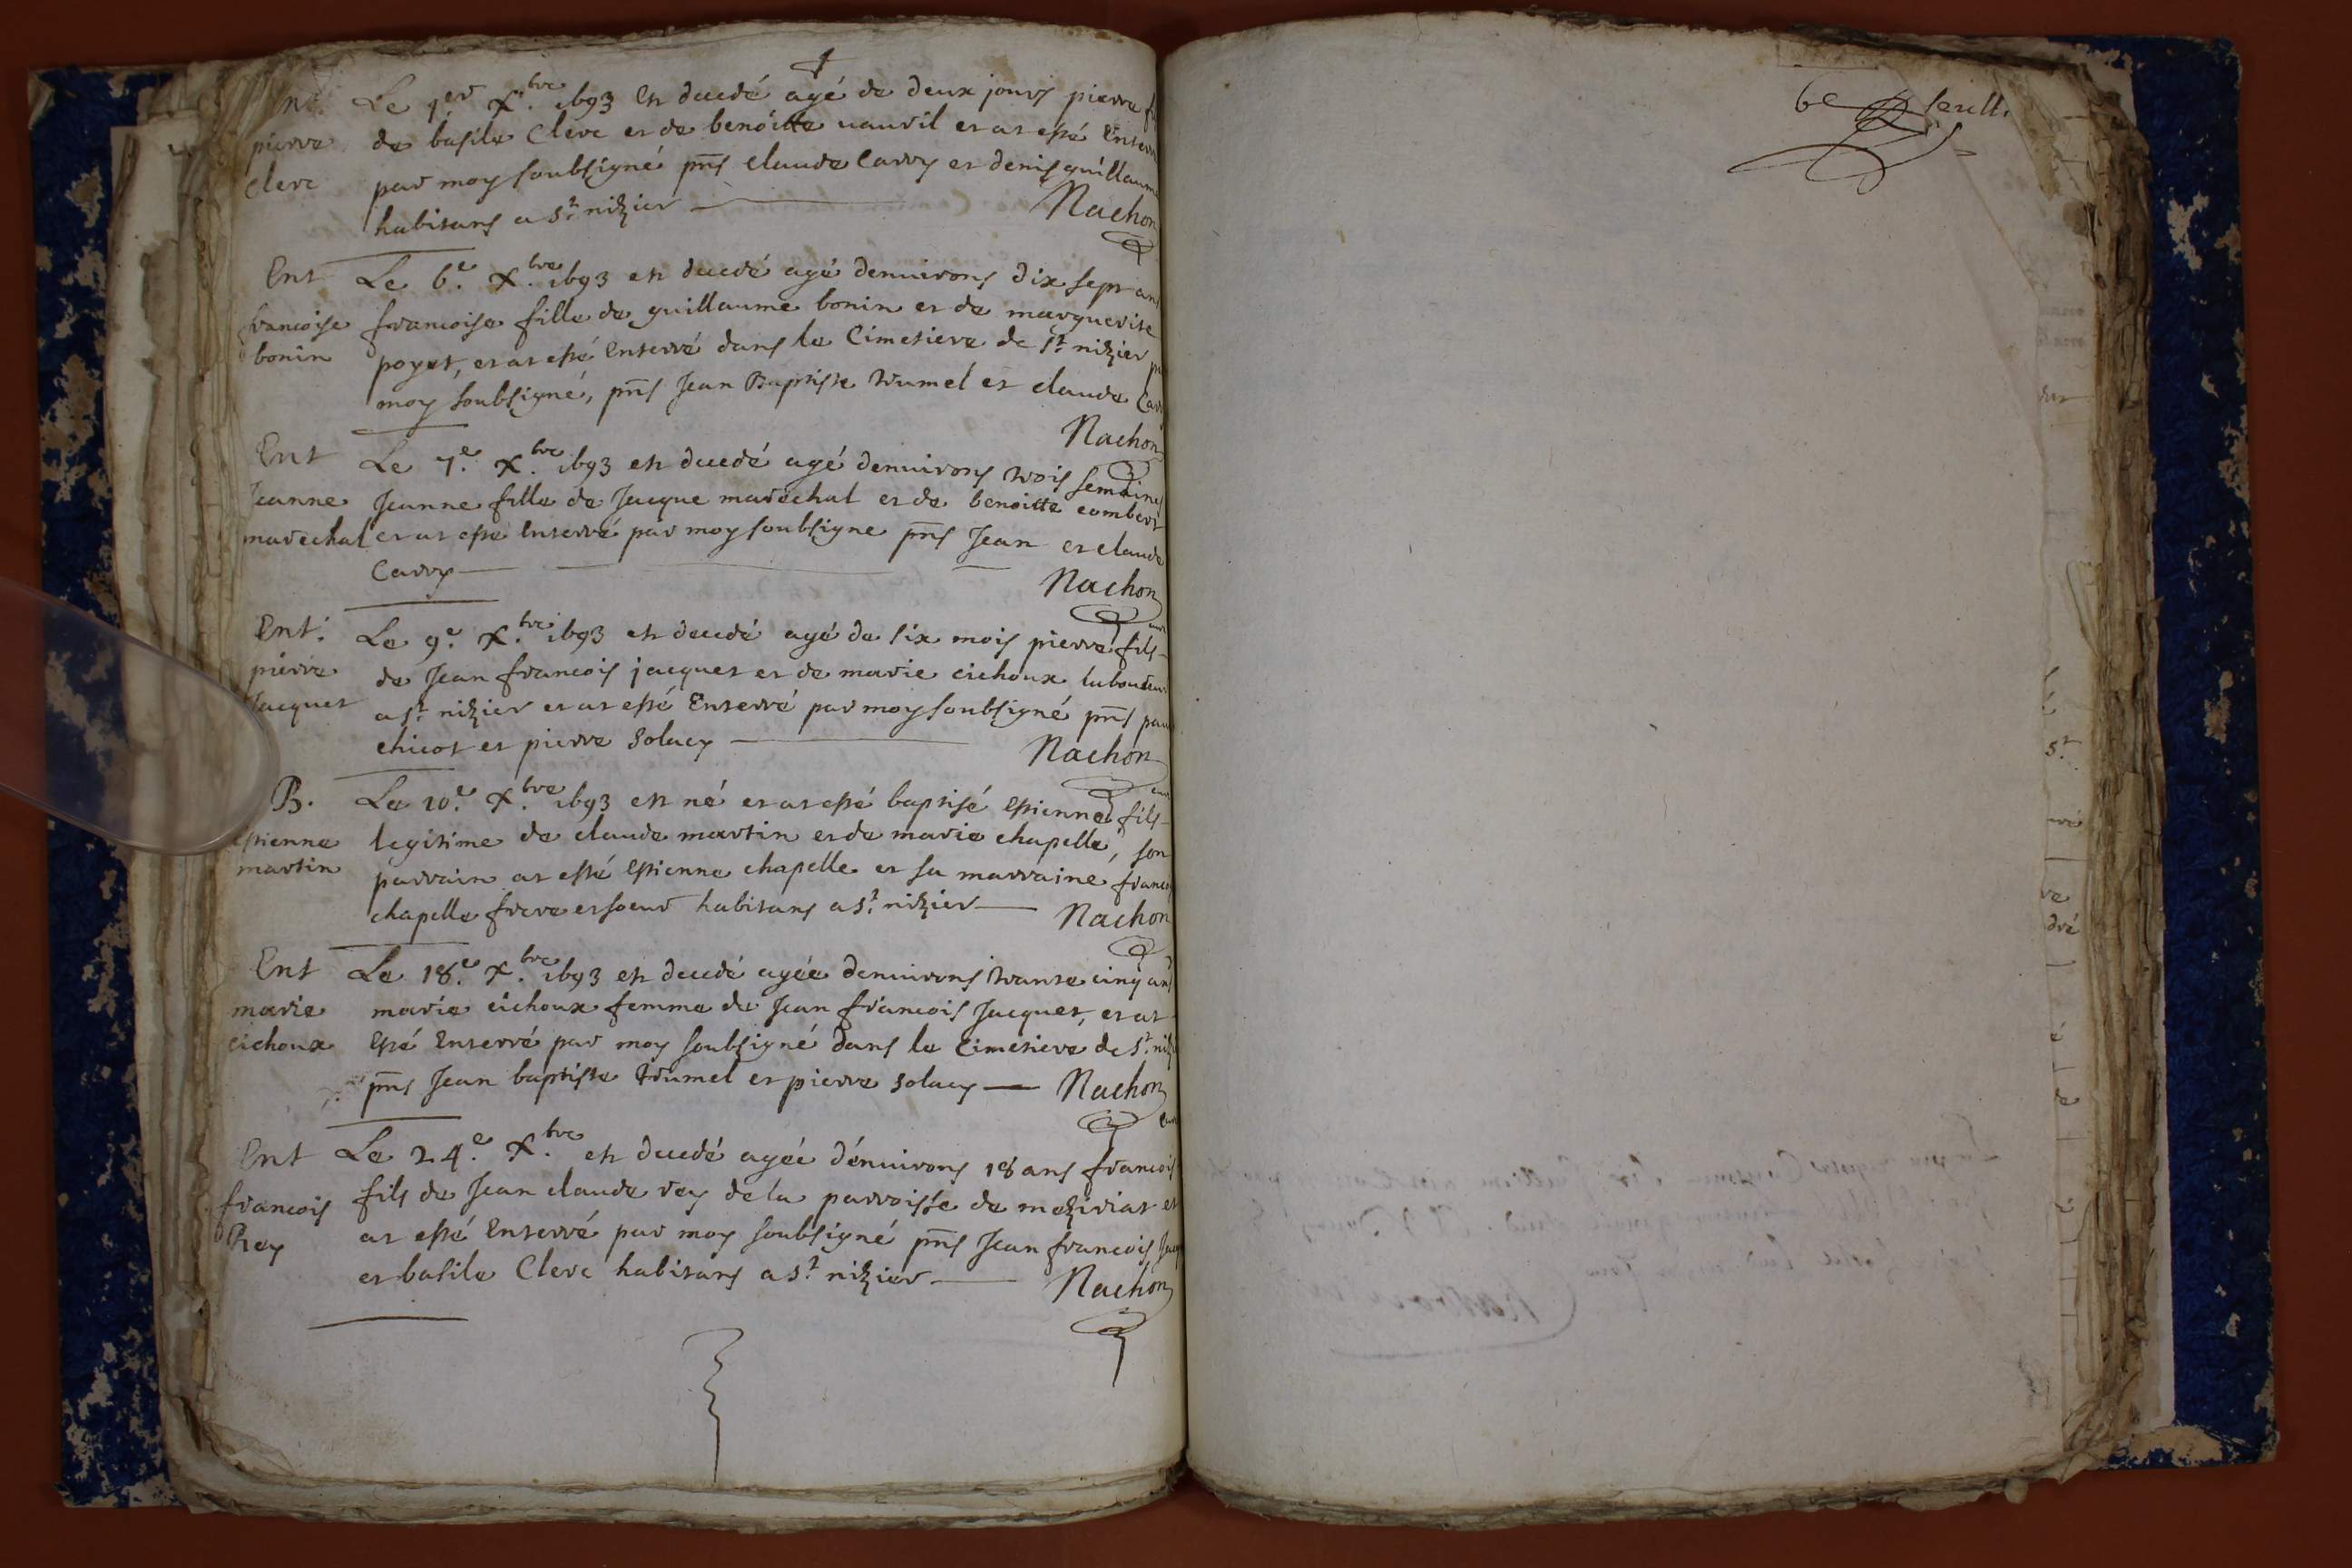 Ent.
pierre
Clerc
Le 1er Xbre 1693 est decedé agé de deux jours pierre
de basile Clerc et de benoitte vauvil et at esté Enterré
par moy soubsigné pnts claude Carry et denis guillaume
habitans a st nizier Nachon
Ent
francoise
bonin
Le 6e Xbre 1693 est decedé agé denvirons dix sept ans
francoise fille de guillaume bonin et de marguerite
poyet, et at esté Enterré dans le Cimetiere de st nizier
moy soubsigné, pnts Jean Baptiste trumel et claude
Nachon
Ent
Jeanne
marechal
Le 7e Xbre 1693 est decedé agé denvirons trois semaines
Jeanne fille de Jacque marechal et de benoitte combert
et at esté Enterré par moy soubsigne pnts Jean et claude
Carry Nachon
Ent.
pierre
Jacquet
Le 9e Xbre 1693 est decedé agé de six mois pierre fils
de Jean francois jacquet et de marie cichoux laboureur
a st nizier et at esté Enterré par moy soubsigné pnts
chicot et pierre solacy Nachon
B.
estienne
martin
Le 10e Xbre 1693 est né et at esté baptisé Estienne fils
legitime de claude martin et de marie chapelle, son
parrain at esté Estienne chapelle et sa marraine
chapelle frere et soeur habitans a st nizier Nachon
Ent
marie
cichoux
Le 18e Xbre 1693 est decedé agée denvirons trante cinq ans
marie cichoux femme de Jean francois Jacquet, et at
Esté Enterré par moy soubsigné dans le Cimetiere de st
pnts Jean baptiste trumel et pierre solacy Nachon
Ent
francois
Rey
Le 24e Xbre est decedé agée d'environs 18 ans francois
fils de Jean claude rey de la parroisse de meziriat et
at esté Enterré par moy soubsigné pnts Jean francois
et basile Clerc habitans a st nizier Nachon
6e feuill.